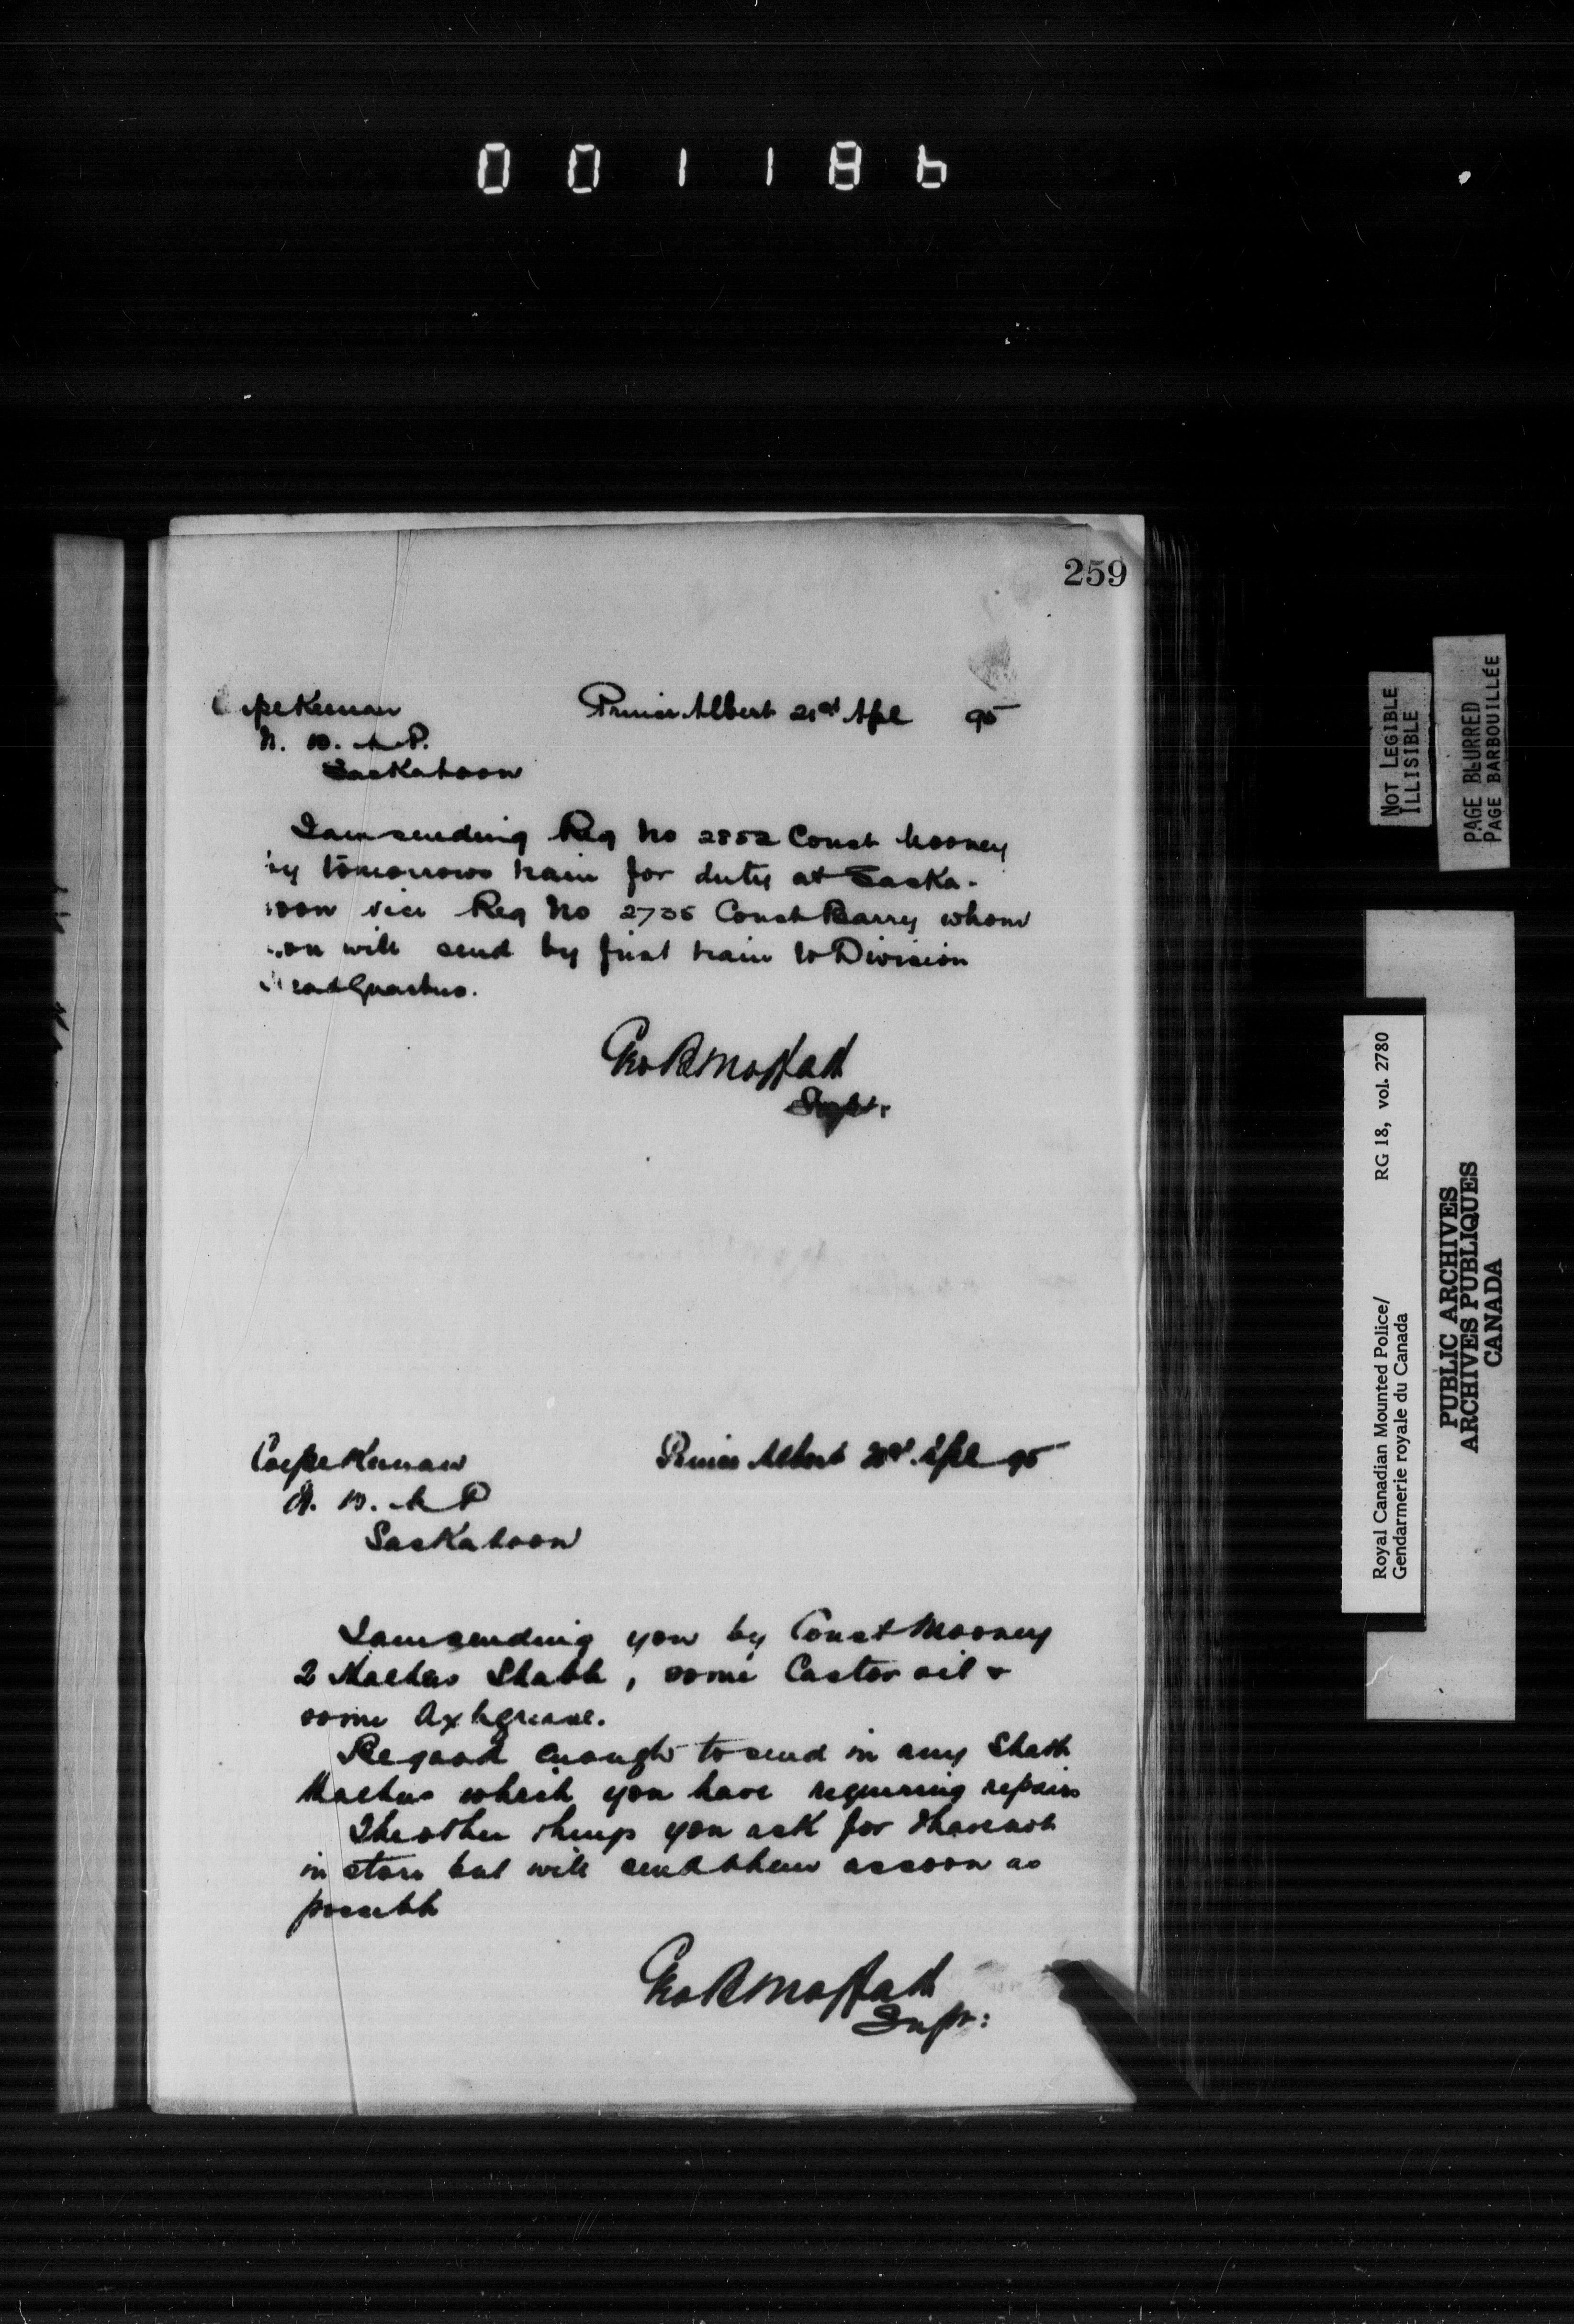 001186
259
Corpl Keenan Prince Albert 21st Apl 95
N. W. M. P.
Saskatoon
I am sending Reg No 2852 Const Mooney
by tomorrows train for duty at Saska-
toon vice Reg No 2735 Const Barry whom
you will send by first train to Division
Head Quarters.
Geo B Moffatt
Supt.
Corpl Keenan Prince Albert Apl 95
N. W. M P
Saskatoon
I am sending you by Const Mooney
2 Stable, some Castor oil &
some Axle grease.
Be good enough to send in any
which you have requiring repairs
The other things you ask for I have not
in store but will send them as soon as
possible
Geo B Moffatt
Supt:
NOT LEGIBLE
ILLISIBLE
PAGE BLURRED
PAGE BARBOUILLÉE
Royal Canadian Mounted Police/ RG 18, vol. 2780
Gendarmerie royale du Canada
PUBLIC ARCHIVES
ARCHIVES PUBLIQUES
CANADA